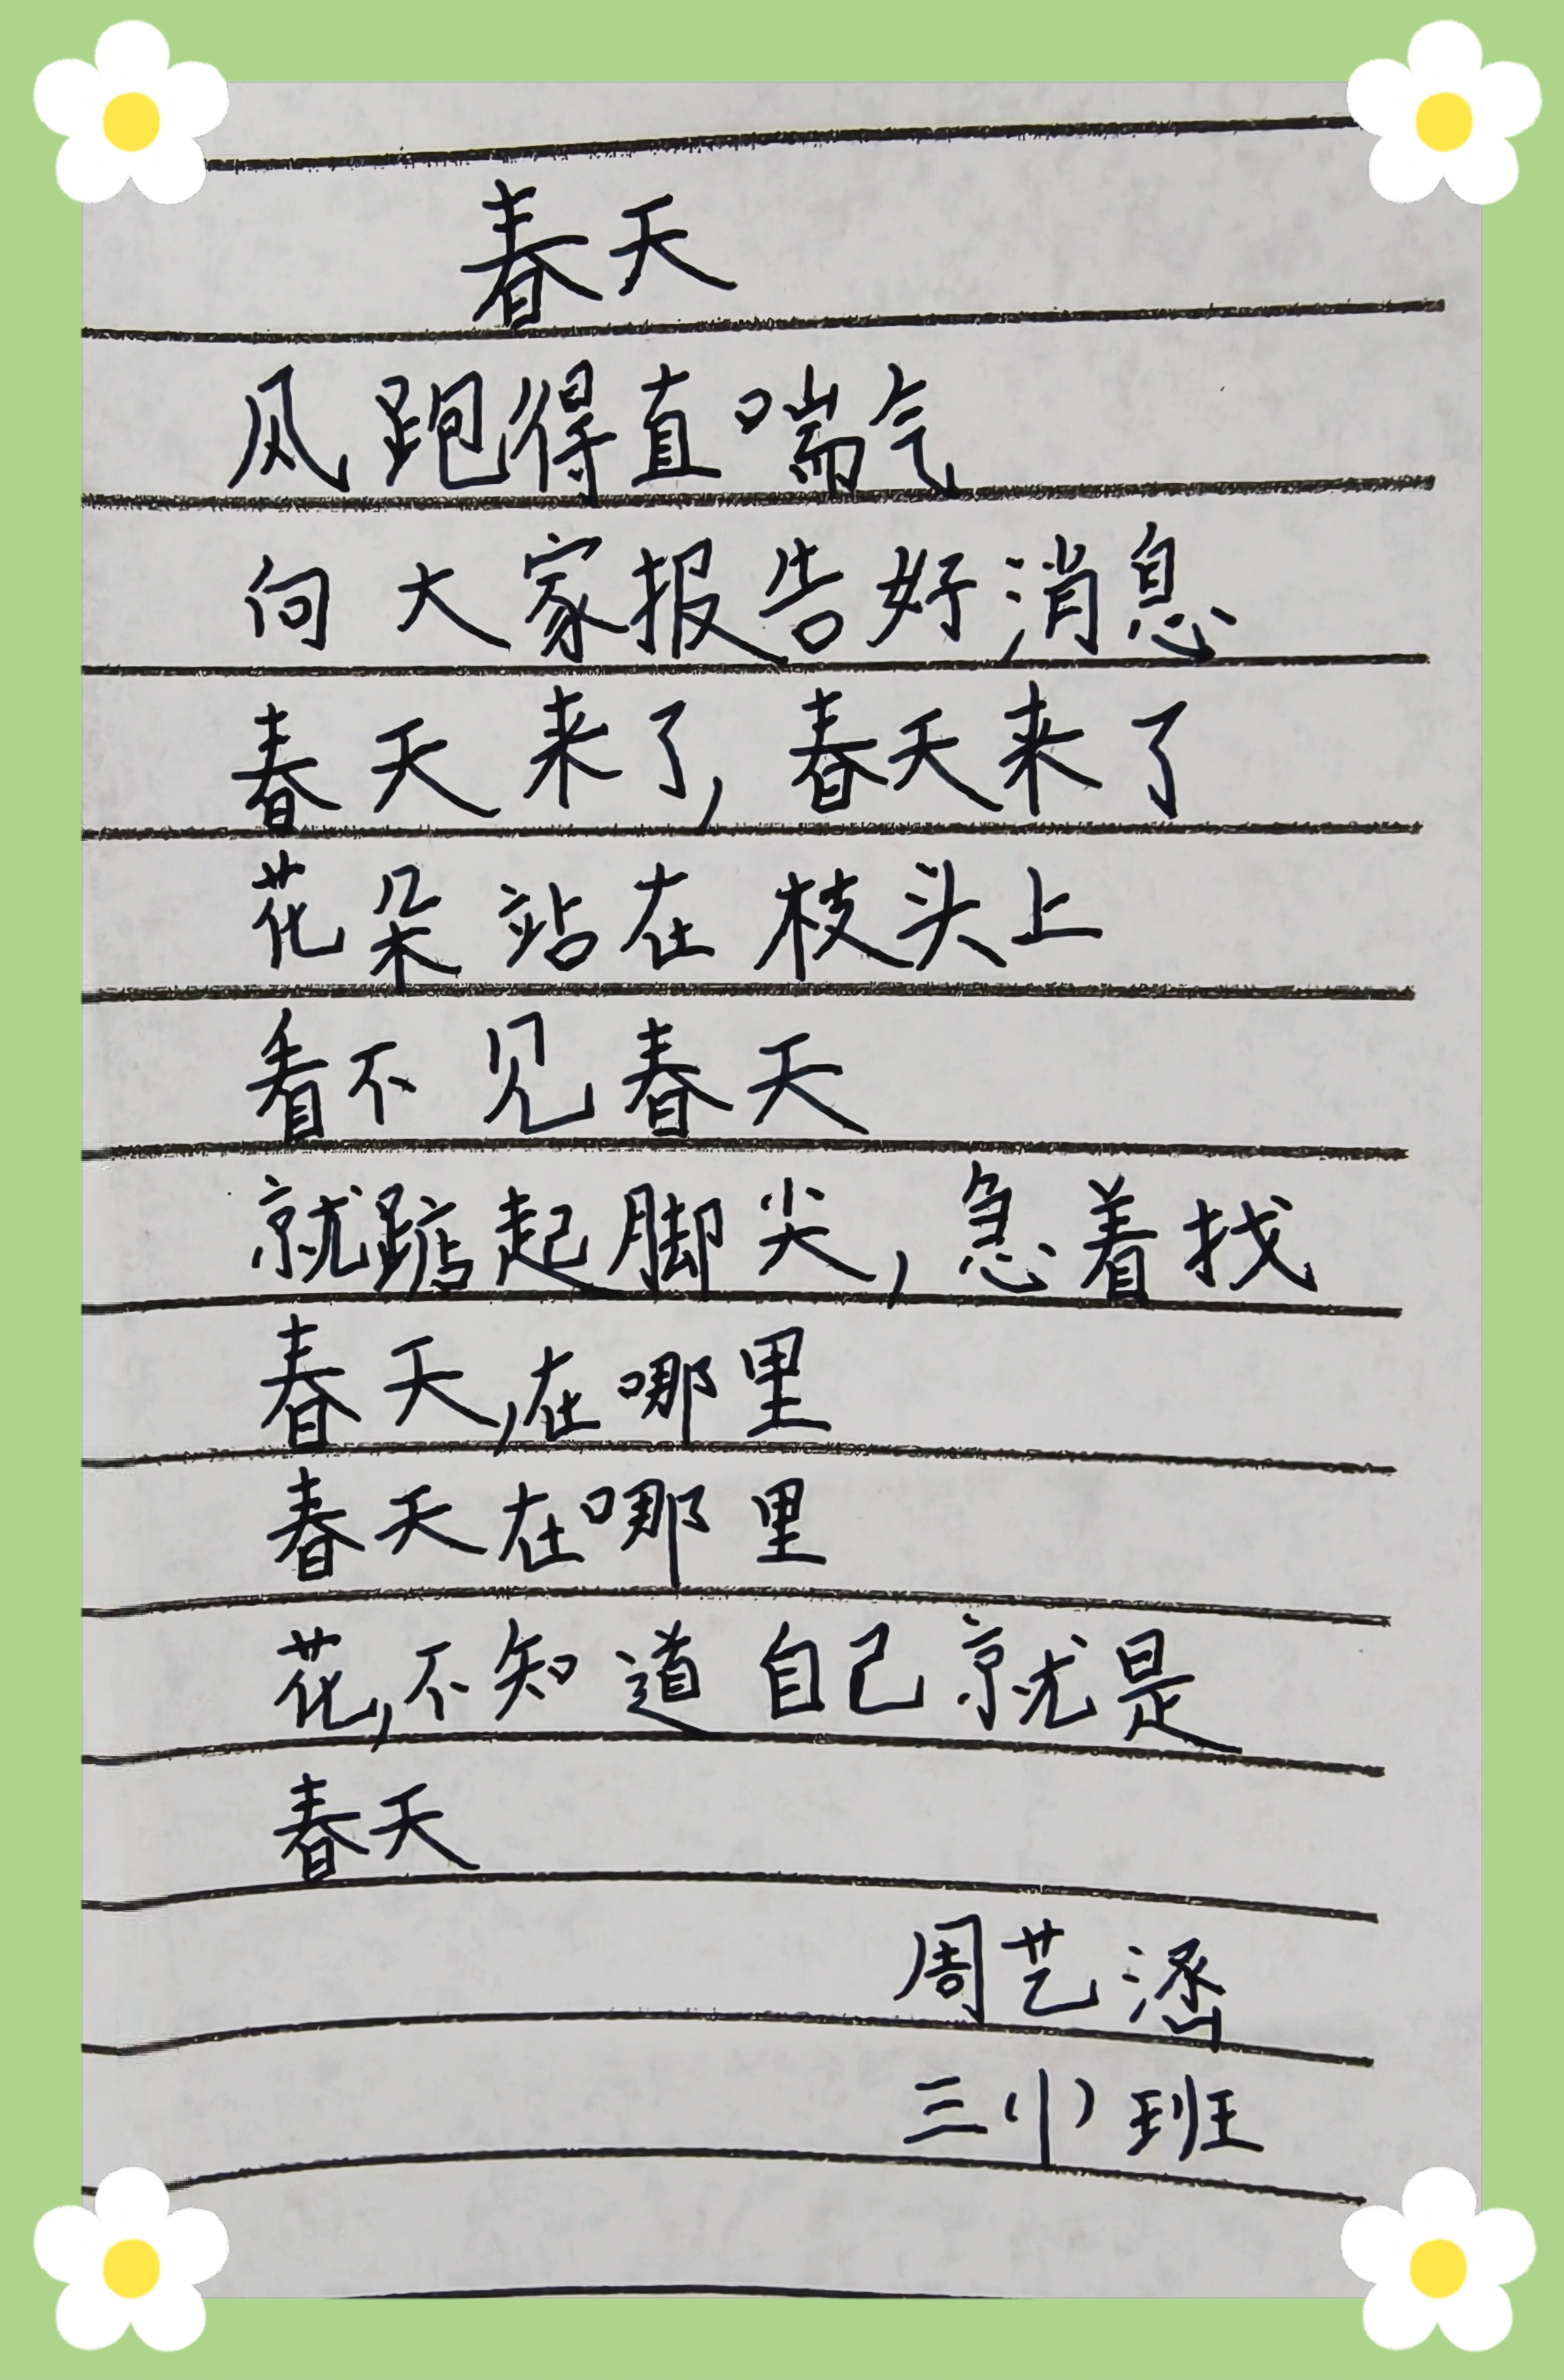 春天
风跑得直喘气
向大家报告好消息
春天来了，春天来了
花朵站在枝头上
看不见春天
就踮起脚尖，急着找
春天，在哪里
春天在哪里
花，不知道自己就是
春天
周艺涵
三（1）班